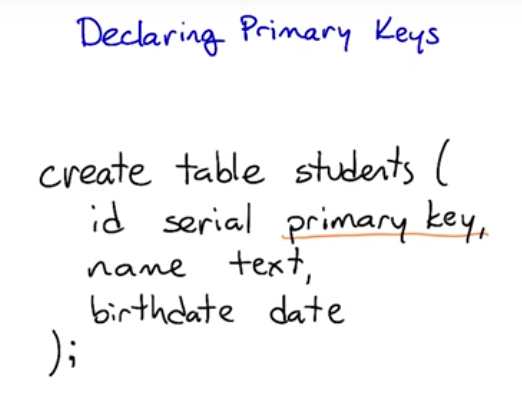 Declaring Primary Keys
create table students (
id serial primary key,
name text,
birthdate date
);